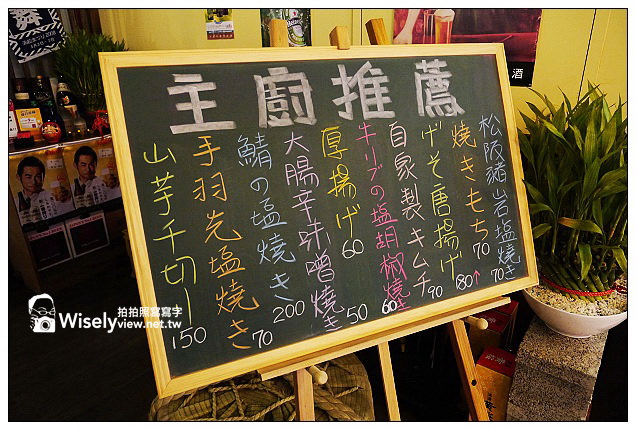 主廚推薦
松阪豬岩塩焼き 70
焼きもち 70
げそ唐揚げ 180↑
自家製キムチ 90
牛リブの塩胡椒焼き 60
厚揚げ 60
大腸辛味噌焼き 50
鯖の塩焼き 200
手羽先塩焼き 70
山芋千切り 150
酒
拍拍照寫寫字
Wiselyview.net.tw